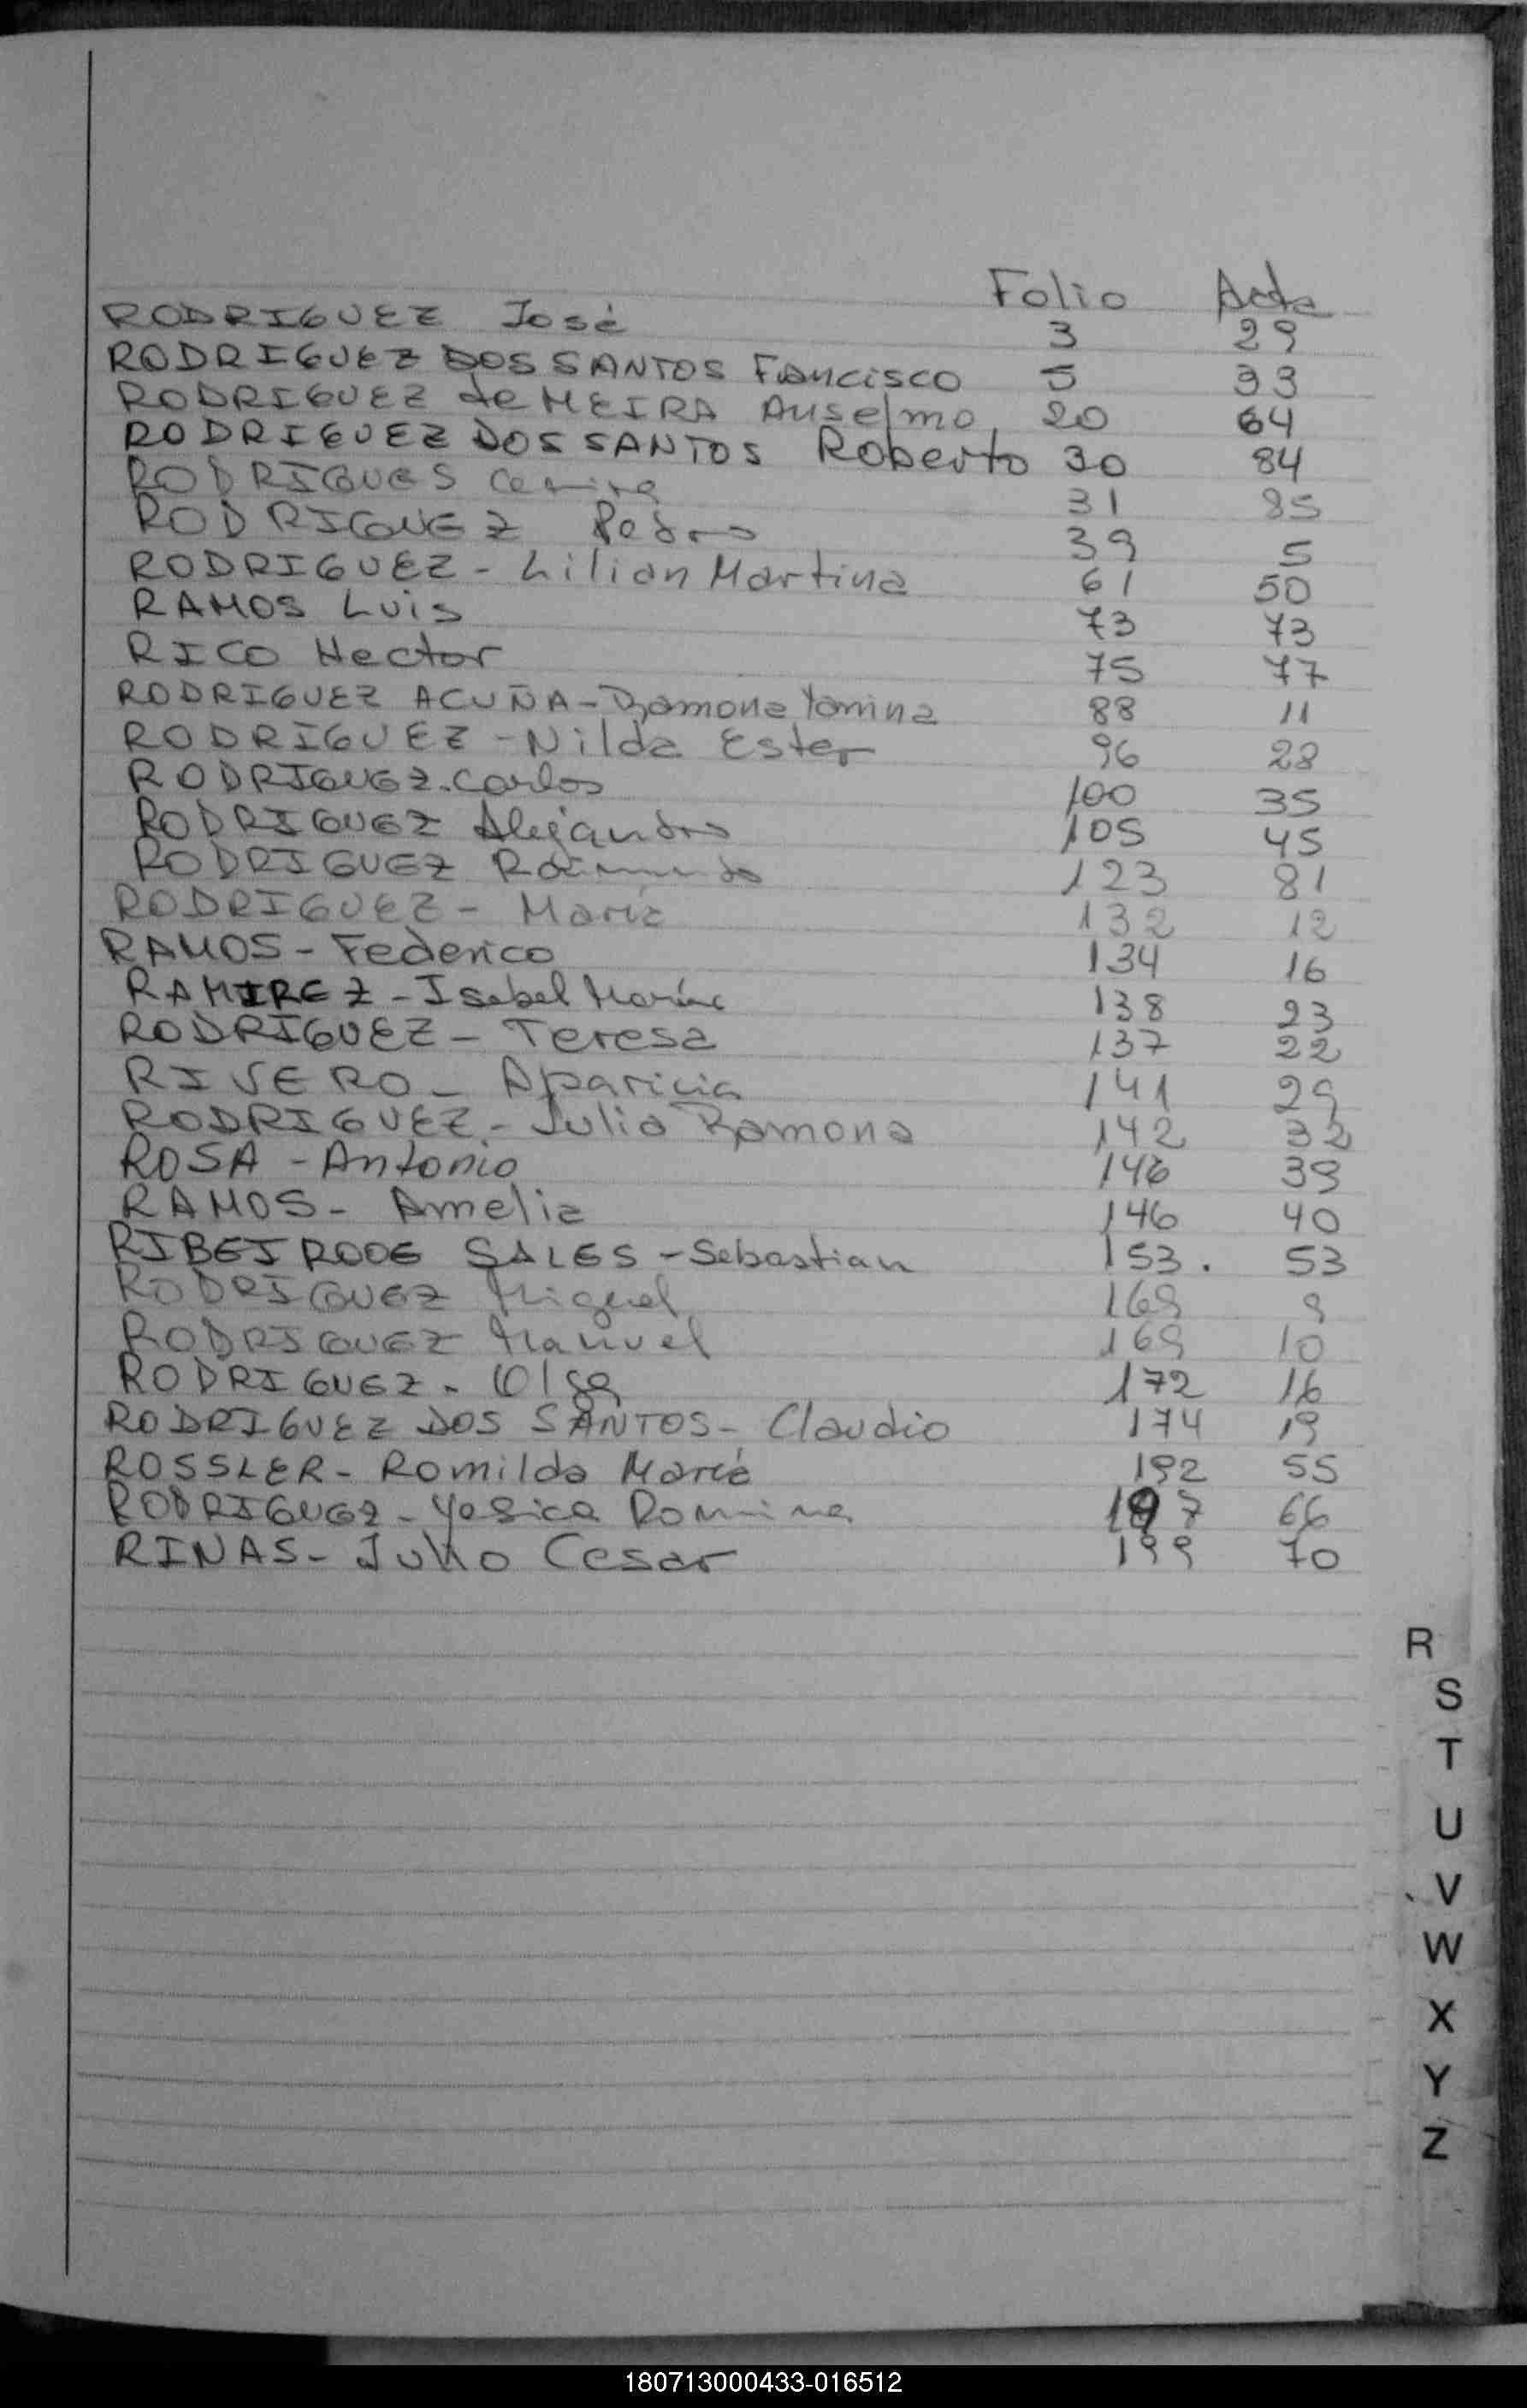 Folio Acta
RODRIGUEZ José 3 29
RODRIGUEZ DOS SANTOS Fancisco 5 33
RODRIGUEZ de MEIRA Anselmo 20 64
RODRIGUEZ DOS SANTOS Roberto 30 84
RODRIGUES 31 85
RODRIGUEZ Pedro 39 5
RODRIGUEZ - Lilian Martina 61 50
RAMOS Luis 73 73
RICO Hector 75 77
RODRIGUEZ ACUÑA - Ramona Yanina 88 11
RODRIGUEZ - Nilda Ester 96 28
RODRIGUEZ. Carlos 100 35
RODRIGUEZ Alejandro 105 45
RODRIGUEZ Raimundo 123 81
RODRIGUEZ - María 132 12
RAMOS - Federico 134 16
RAMIREZ - Isabel María 138 23
RODRIGUEZ - Teresa 137 22
RIVERO - Aparicia 141 29
RODRIGUEZ. - Julia Ramona 142 32
ROSA - Antonio 146 39
RAMOS - Amelia 146 40
RIBEIRODE SALES - Sebastian 153. 53
RODRIGUEZ Miguel 169 9
RODRIGUEZ Manuel 169 10
RODRIGUEZ - Olga 172 16
RODRIGUEZ DOS SANTOS - Claudio 174 19
ROSSLER - Romilda María 192 55
RODRIGUEZ - Yesica Romina 197 66
RINAS - Julio Cesar 199 70
R
S
T
U
V
W
X
Y
Z
180713000433-016512